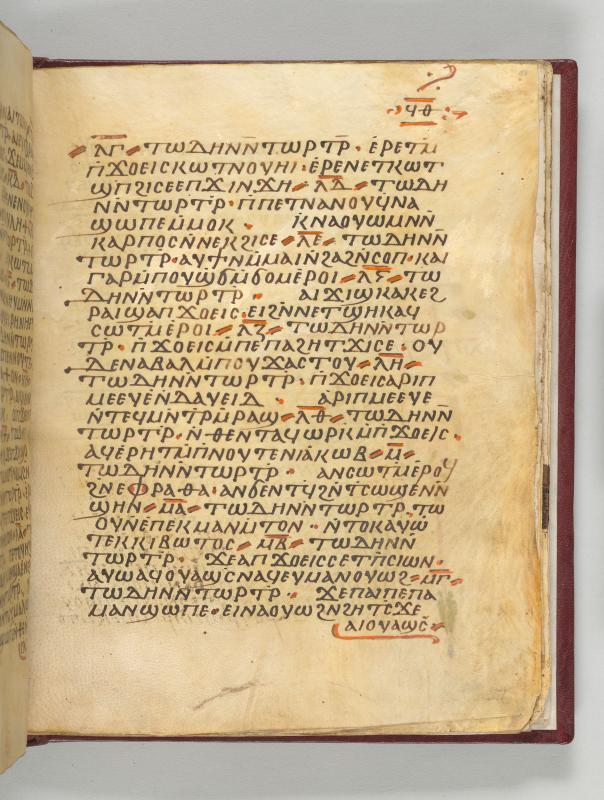 ϥⲑ
ⲗⲅ ⲧⲱⲇⲏⲛⲛ̄ⲧⲱⲣⲧⲣ̄ · ⲉⲣⲉⲧⲙ
ⲡ̄ϫⲟⲉⲓⲥⲕⲱⲧⲛⲟⲩⲏⲓ · ⲉⲣⲉⲛⲉⲧⲕⲱⲧ
ϣⲡϩⲓⲥⲉⲉⲡϫⲓⲛϫⲏ ⲗⲇ ⲧⲱⲇⲏ
ⲛⲛ̄ⲧⲱⲣⲧⲣ̄ · ⲡⲡⲉⲧⲛⲁⲛⲟⲩϥⲛⲁ
ϣⲱⲡⲉⲙ̄ⲙⲟⲕ · ⲕⲛⲁⲟⲩⲱⲙⲛ̄ⲛ̄
ⲕⲁⲣⲡⲟⲥⲛ̄ⲛⲉⲕϩⲓⲥⲉ ⲗⲉ ⲧⲱⲇⲏⲛⲛ̄
ⲧⲱⲣⲧⲣ̄ · ⲁⲩϯⲛⲙ̄ⲙⲁⲓⲛ̄ϩⲁϩⲛ̄ⲥⲟⲡ · ⲕⲁⲓ
ⲅⲁⲣⲙ̄ⲡⲟⲩϣϭⲙ̄ϭⲟⲙⲉⲣⲟⲓ ⲗⲋ ⲧⲱ
ⲇⲏⲛⲛ̄ⲧⲱⲣⲧⲣ̄ · ⲁⲓϫⲓϣⲕⲁⲕⲉϩ
ⲣⲁⲓϣⲁⲡϫⲟⲉⲓⲥ · ⲉⲓϩⲛ̄ⲛⲉⲧϣⲏⲕⲁϥ
ⲥⲱⲧⲙ̄ⲉⲣⲟⲓ ⲗⲍ ⲧⲱⲇⲏⲛⲛ̄ⲧⲱⲣ
ⲧⲣ̄ · ⲡ̄ϫⲟⲉⲓⲥⲙ̄ⲡⲉⲡⲁϩⲏⲧϫⲓⲥⲉ · ⲟⲩ
ⲇⲉⲛⲁⲃⲁⲗⲙ̄ⲡⲟⲩϫⲁⲥⲧⲟⲩ ⲗⲏ
ⲧⲱⲇⲏⲛⲛ̄ⲧⲱⲣⲧⲣ̄ · ⲡ̄ϫⲟⲉⲓⲥⲁⲣⲓⲡ
ⲙⲉⲉⲩⲉⲛ̄ⲇⲁⲩⲉⲓⲇ · ⲁⲣⲓⲡⲙⲉⲉⲩⲉ
ⲛ̄ⲧⲉϥⲙⲛ̄ⲧⲣⲙ̄ⲣⲁϣ ⲗⲑ ⲧⲱⲇⲏⲛⲛ̄
ⲧⲱⲣⲧⲣ̄ · ⲛ̄ⲑⲉⲛⲧⲁϥⲱⲣⲕⲙ̄ⲡ̄ϫⲟⲉⲓⲥ ·
ⲁϥⲉⲣⲏⲧⲙ̄ⲡⲛⲟⲩⲧⲉⲛ̄ⲓⲁⲕⲱⲃ ⲙ
ⲧⲱⲇⲏⲛⲛ̄ⲧⲱⲣⲧⲣ̄ · ⲁⲛⲥⲱⲧⲙ̄ⲉⲣⲟϥ
ϩⲛ̄ⲉⲫⲣⲁⲑⲁ · ⲁⲛϭⲉⲛⲧϥ̄ϩⲛ̄ⲧⲥⲱϣⲉⲛ̄ⲛ̄
ϣⲏⲛ ⲙⲁ ⲧⲱⲇⲏⲛⲛ̄ⲧⲱⲣⲧⲣ̄ · ⲧⲱ
ⲟⲩⲛ̄ⲉⲡⲉⲕⲙⲁⲛⲙ̄ⲧⲟⲛ · ⲛ̄ⲧⲟⲕⲁⲩⲱ
ⲧⲉⲕⲕⲓⲃⲱⲧⲟⲥ ⲙⲃ ⲧⲱⲇⲏⲛⲛ̄
ⲧⲱⲣⲧⲣ̄ · ϫⲉⲁⲡϫⲟⲉⲓⲥⲥⲉⲧⲡ̄ⲥⲓⲱⲛ ·
ⲁⲩⲱⲁϥⲟⲩⲁϣⲥ̄ⲛⲁϥⲉⲩⲙⲁⲛⲟⲩⲱϩ ⲙⲅ
ⲧⲱⲇⲏⲛⲛ̄ⲧⲱⲣⲧⲣ̄ · ϫⲉⲡⲁⲓⲡⲉⲡⲁ
ⲙⲁⲛϣⲱⲡⲉ · ⲉⲓⲛⲁⲟⲩⲱϩⲛ̄ϩⲏⲧⲥ̄ϫⲉ
ⲁⲓⲟⲩⲁϣⲥ̄